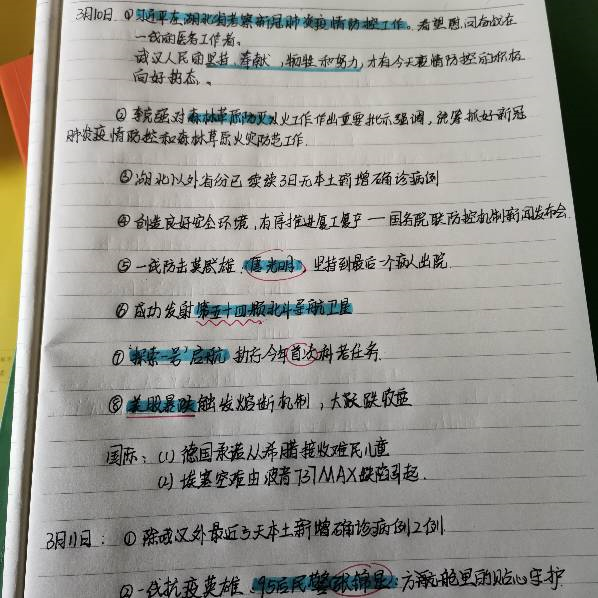 3月10日 ①习近平在湖北省考察新冠肺炎疫情防控工作。看望慰问奋战在
一线的医务工作者。
武汉人民的坚持、奉献、牺牲和努力,才有今天疫情防控的积极
向好动态。
②李克强对森林草原防灭火工作作出重要批示强调,统筹抓好新冠
肺炎疫情防控和森林草原火灾防范工作.
③湖北以外省份已连续3日无本土新增确诊病例
④创造良好安全环境,有序推进复工复产——国务院联防控机制新闻发布会.
⑤一线防击英雄.(屠光明),坚持到最后一个病人出院.
⑥成功发射第五十四颗北斗导航卫星
⑦"探索一号"启航 执行今年首次科考任务.
⑧美股暴跌触发熔断机制,大跌收盘
国际:(1)德国承诺从希腊接收难民儿童
(2)埃塞空难由波音737MAX缺陷引起.
3月11日:①除武汉外最近3天本土新增确诊病例2例
②一线抗疫英雄.95后民警张锦:方舱舱里的贴心守护